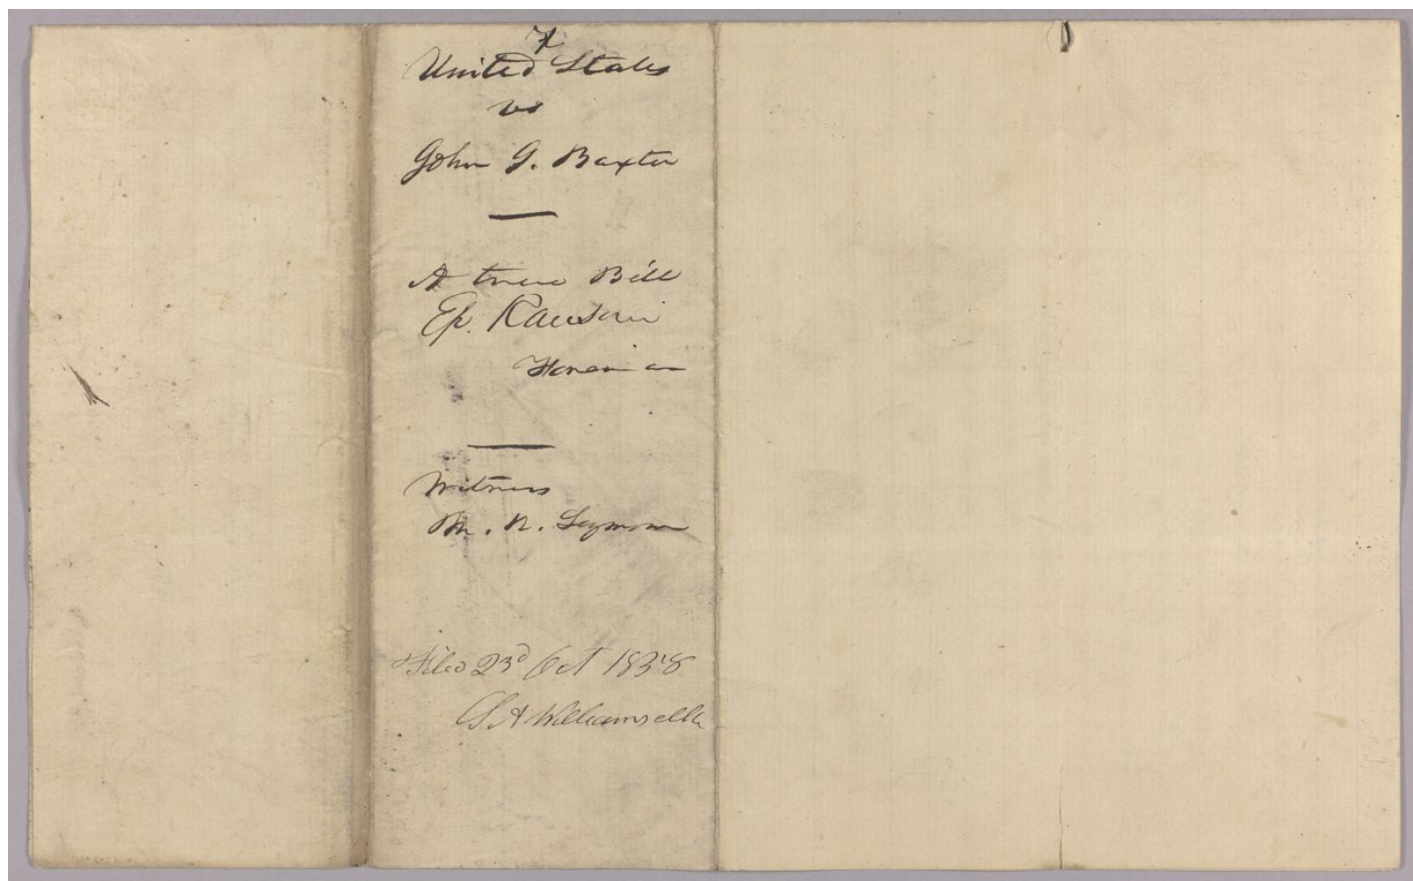 United States
vs
John G. Baxter
A true Bill
Ep. Rawson
Foreman
Witness
M. N. Seymour
Filed 23d Oct 1838
S A Williams clk